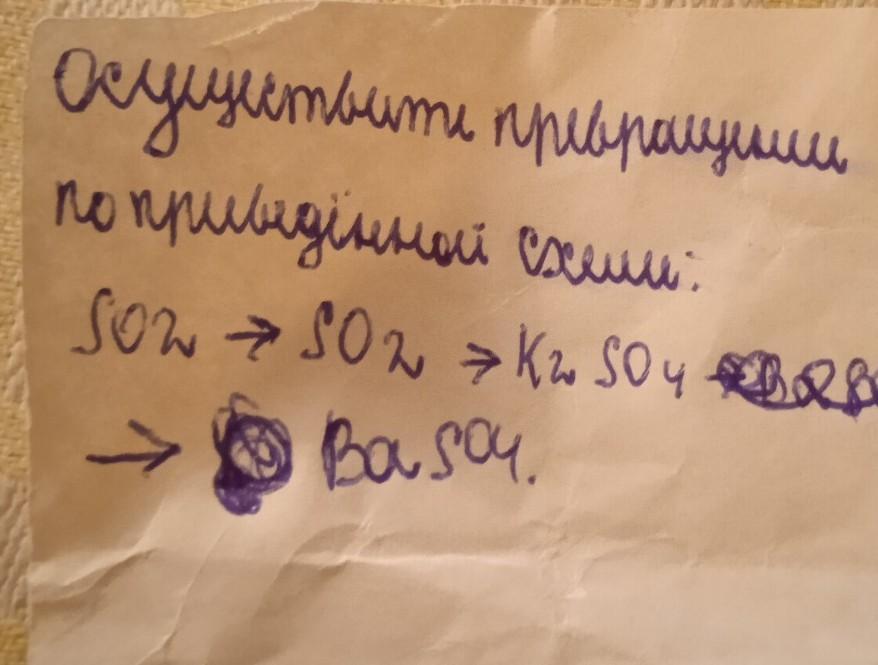 Осуществите превращении
по приведённой схеми:
SO2 → SO2 → K2SO4
→ BaSO4.